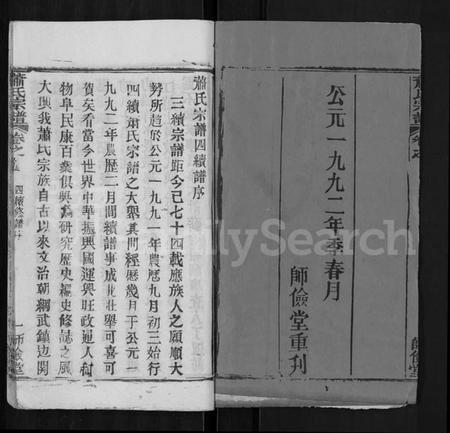 公元一九九二年季春月
師儉堂重刋
蕭氏宗譜
師儉堂
FamilySearch
蕭氏宗譜四續譜序
三續宗譜距今已七十四載應族人之願順大
勢所趨於公元一九九一年農曆九月初三始行
四續蕭氏宗譜之大舉其間經歷幾月于公元一
九九二年農歷二月間續譜事成此壯舉可喜可
賀矣看當今世界中華振興國運興旺政通人和
物阜民康百業俱興為研究歷史編史修誌之風
大興我蕭氏宗族自古以來文治朝綱武鎮边関
蕭氏宗譜
卷之首
四續修譜序
一
師儉堂